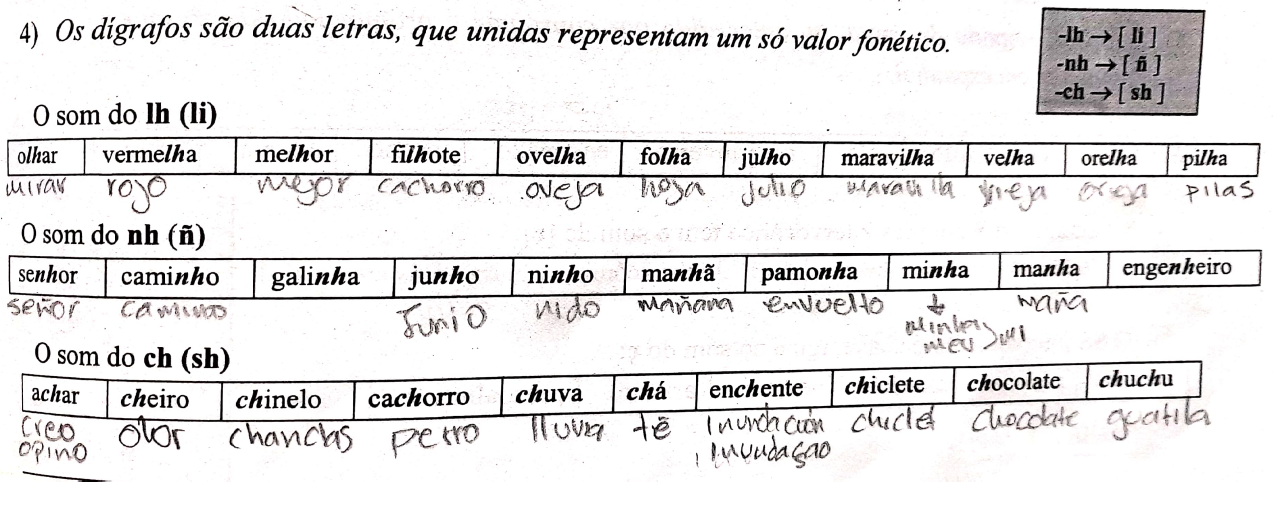 4) Os dígrafos são duas letras, que unidas representam um só valor fonético.
-lh → [ li ]
-nh → [ ñ ]
-ch → [ sh ]
O som do lh (li)
olhar vermelha melhor filhote ovelha folha julho maravilha velha orelha pilha
mirar rojo mejor cachorro oveja hoja julio maravilla vieja oreja pilas
O som do nh (ñ)
senhor caminho galinha junho ninho manhã pamonha minha manha engenheiro
señor camino Junio nido mañana envuelto maña
meu mi
O som do ch (sh)
achar cheiro chinelo cachorro chuva chá enchente chiclete chocolate chuchu
creo olor chanclas perro lluvia té inundación chiclet chocolate guatila
opino inundaçao